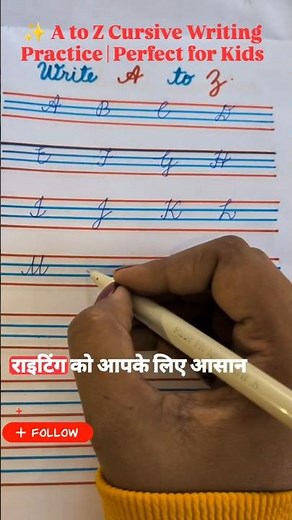 ✨ A to Z Cursive Writing
Practice | Perfect for Kids
Write A to Z.
A B C D
E F G H
I J K L
M
राइटिंग को आपके लिए आसान
+ FOLLOW